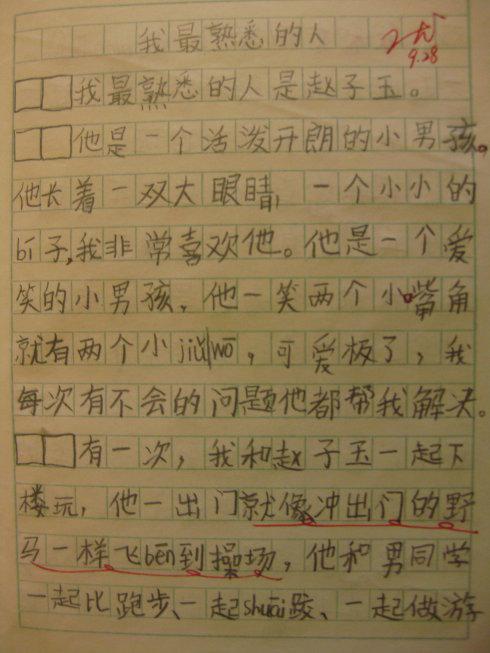 我最熟悉的人
优
9.28
我最熟悉的人是赵子玉。
他是一个活泼开朗的小男孩。
他长着一双大眼睛,一个小小的
bí子,我非常喜欢他。他是一个爱
笑的小男孩,他一笑两个小嘴角
就有两个小jiǔwō,可爱极了,我
每次有不会的问题他都帮我解决。
有一次,我和赵子玉一起下
楼玩,他一出门就像冲出门的野
马一样飞bēn到操场,他和男同学
一起比跑步、一起shuāi跤、一起做游